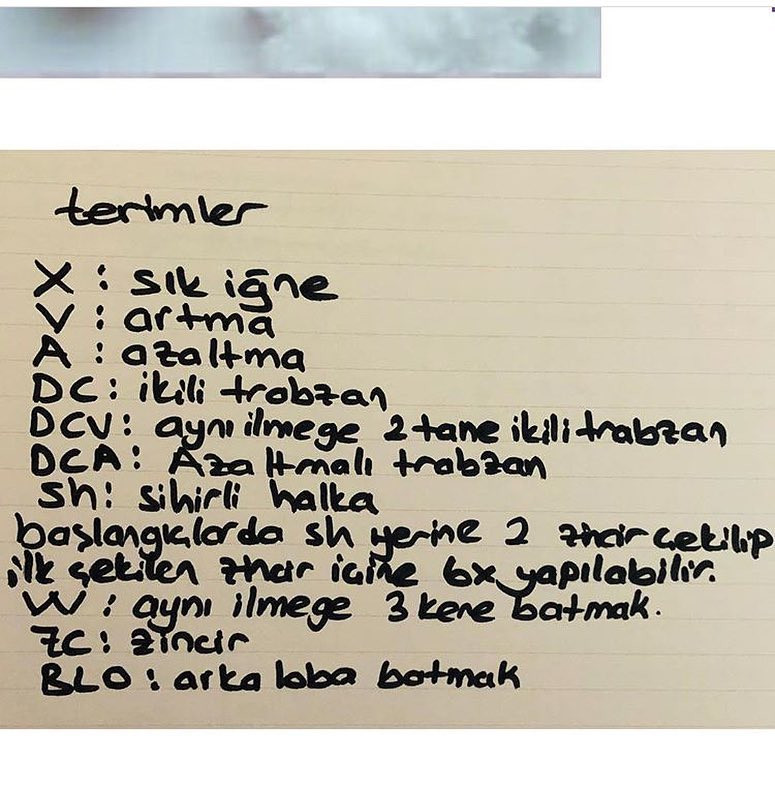 terimler
X : sık iğne
V : artma
A : azaltma
DC : ikili trabzan
DCV : aynı ilmege 2 tane ikili trabzan
DCA : Azaltmalı trabzan
sh : sihirli halka
başlangıçlarda sh yerine 2 zincir çekilip
ilk çekilen zincir içine 6x yapılabilir.
W : aynı ilmege 3 kere batmak.
ZC : zincir
BLO : arka loba batmak